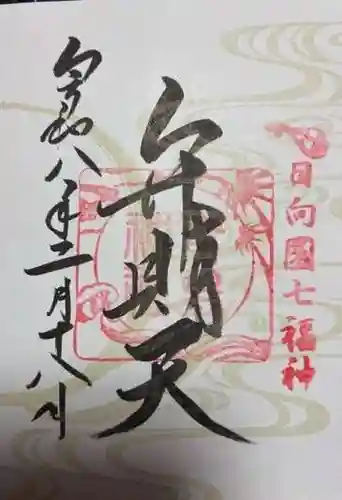 日向國七福神
弁財天
令和八年二月十八日